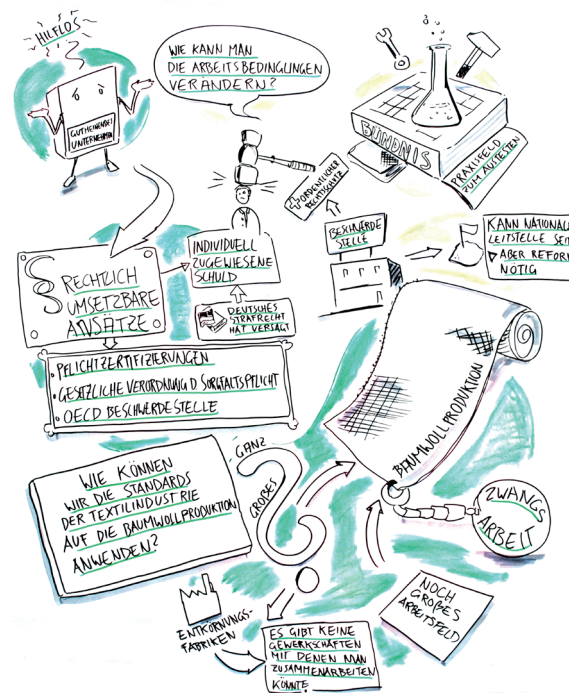 HILFLOS
GUTMEINENDES
UNTERNEHMEN
WIE KANN MAN
DIE ARBEITSBEDINGUNGEN
VERÄNDERN?
BÜNDNIS
PRAXISFELD
ZUM AUSTESTEN
ORDENTLICHER
RECHTSSCHUTZ
BESCHWERDE
STELLE
KANN NATIONALE
LEITSTELLE SEIN
ABER REFORM
NÖTIG
INDIVIDUELL
ZUGEWIESENE
SCHULD
DEUTSCHES
STRAFRECHT
HAT VERSAGT
§ RECHTLICH
UMSETZBARE
ANSÄTZE
• PFLICHTZERTIFIZIERUNGEN
• GESETZLICHE VERORDNUNG D SORGFALTSPFLICHT
• OECD BESCHWERDESTELLE
BAUMWOLLPRODUKTION
WIE KÖNNEN
WIR DIE STANDARDS
DER TEXTILINDUSTRIE
AUF DIE BAUMWOLLPRODUKTION
ANWENDEN?
GANZ
GROßES
?
ZWANGS
ARBEIT
NOCH
GROßES
ARBEITSFELD
ENTKÖRNUNGS-
FABRIKEN
ES GIBT KEINE
GEWERKSCHAFTEN
MIT DENEN MAN
ZUSAMMENARBEITEN
KÖNNTE!